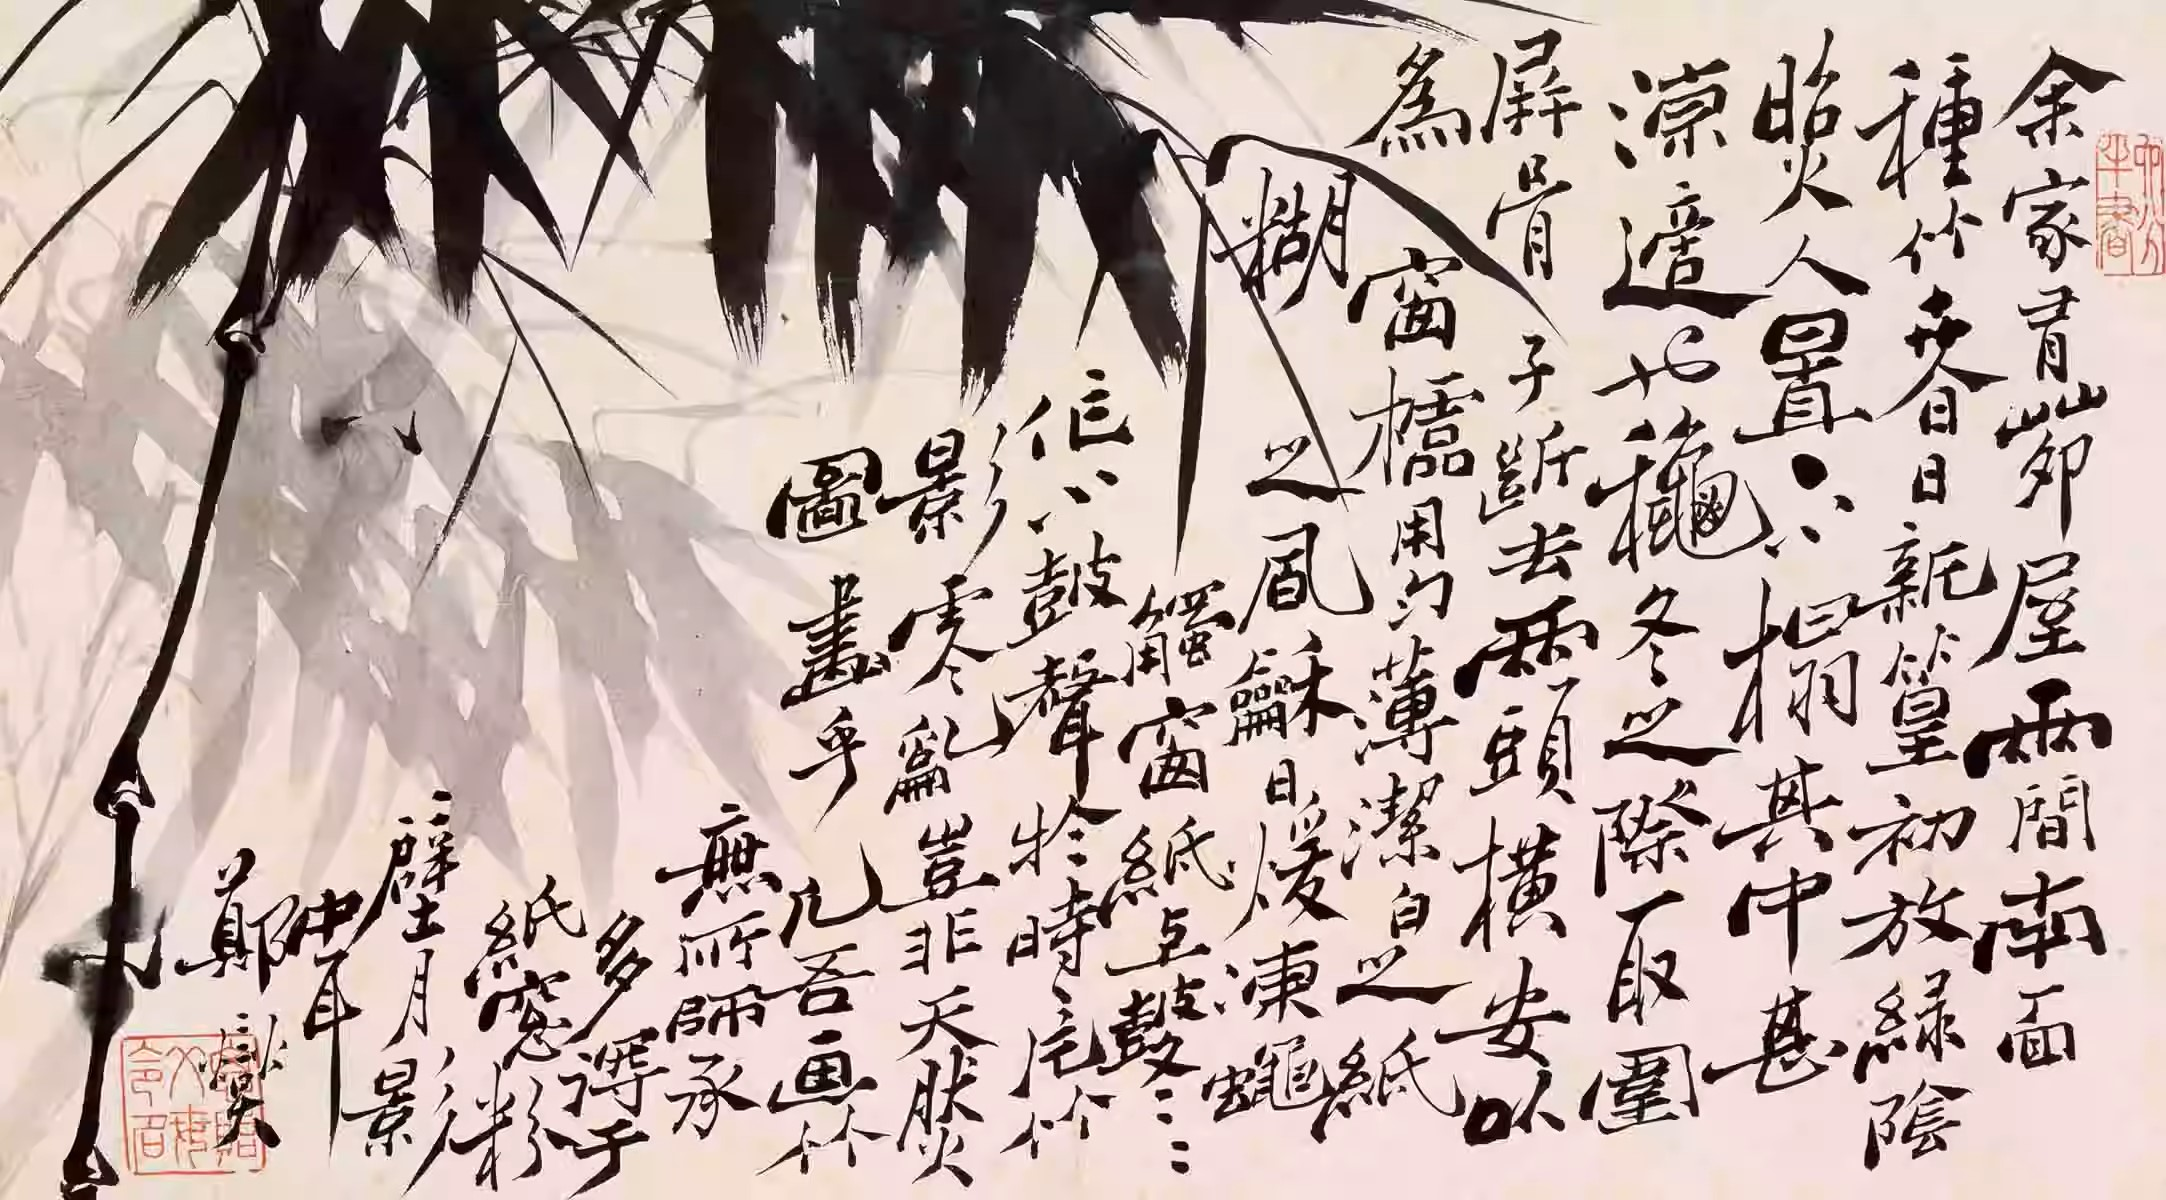 余家有茆屋兩間南面
種竹夏日新篁初放綠陰
照人置小榻其中甚
涼適也龝冬之際取圍
屏骨子斷去兩頭橫安以
為窗櫺用勻薄潔白之紙
糊之風龢日煖凍蠅
觸窗紙上鼕〻
作小鼓聲於時片竹
影零亂豈非天然
圖畫乎凡吾画竹
無所師承
多得于
紙窓粉
壁月影
中耳
鄭燮